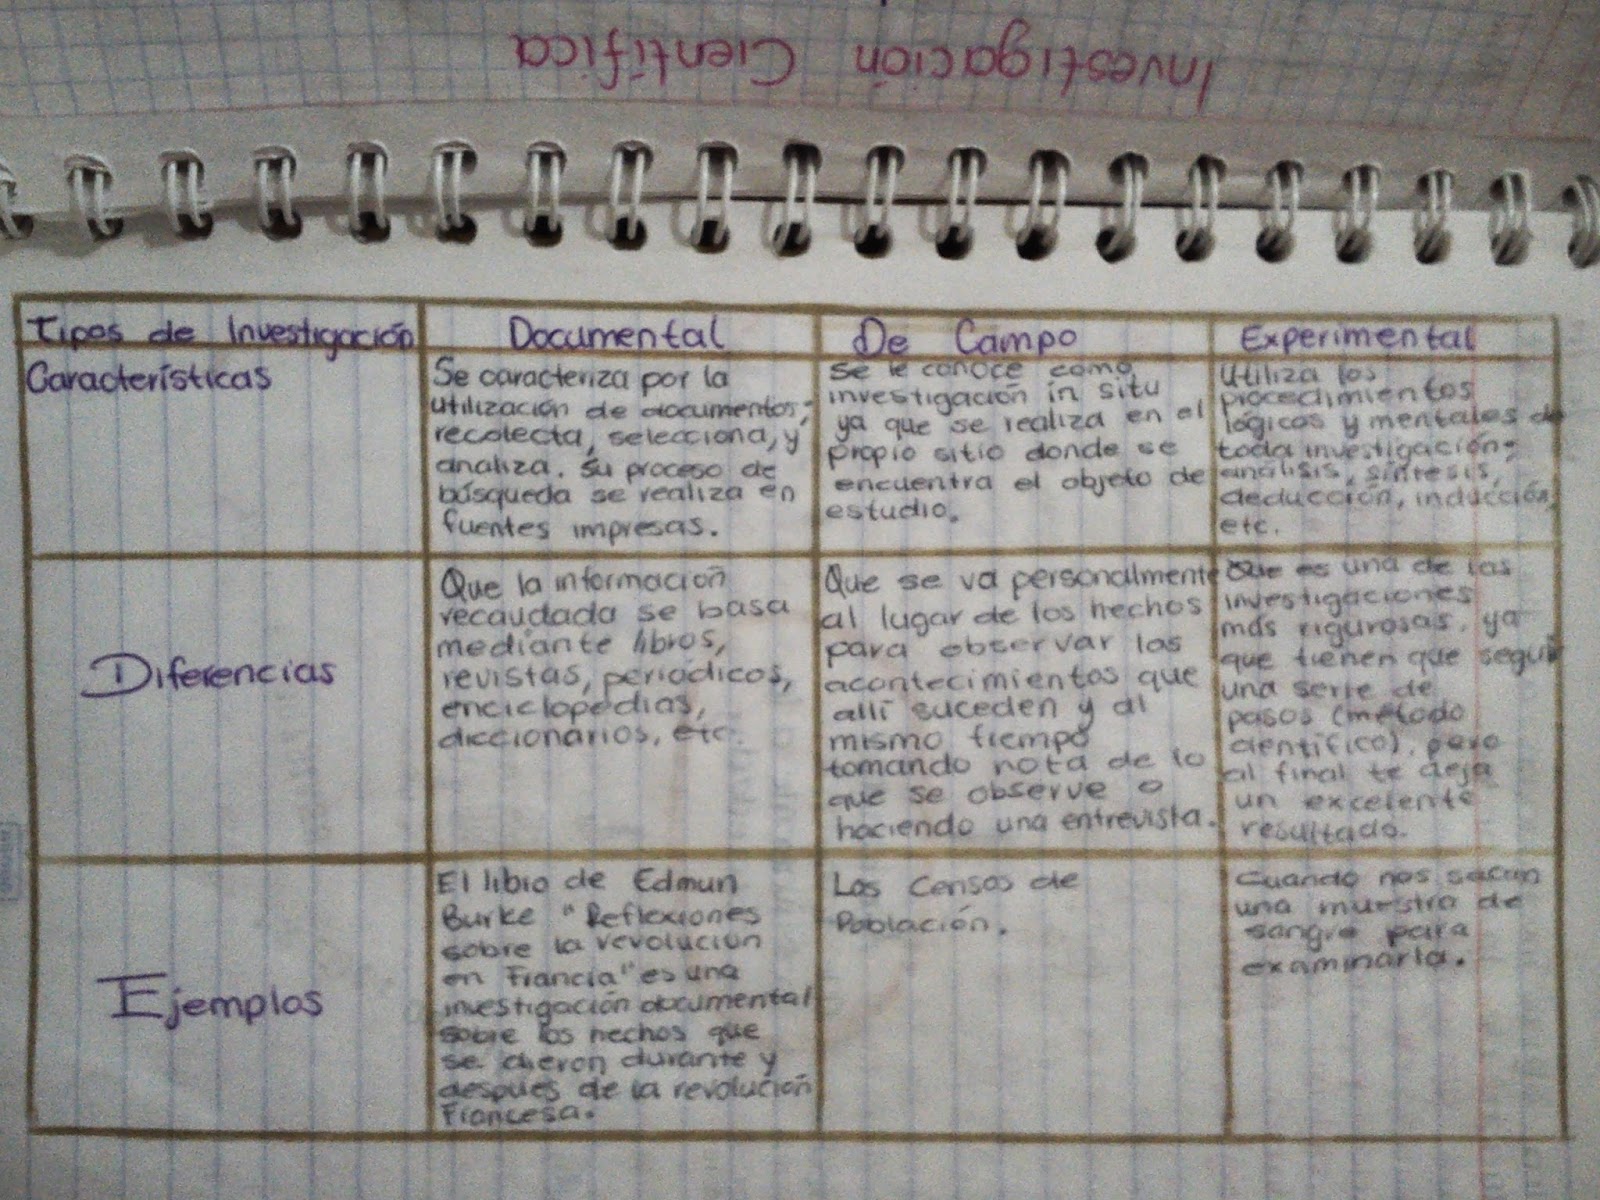 Investigación Científica
Tipos de Investigación
Documental
De Campo
Experimental
Características
Se caracteriza por la
utilización de documentos;
recolecta, selecciona, y
analiza. su proceso de
búsqueda se realiza en
fuentes impresas.
Se le conoce como
investigación in situ
ya que se realiza en el
propio sitio donde se
encuentra el objeto de
estudio.
Utiliza los
procedimientos
lógicos y mentales de
toda investigación;
análisis, síntesis,
deducción, inducción,
etc.
Diferencias
Que la información
recaudada se basa
mediante libros,
revistas, periódicos,
enciclopedias,
diccionarios, etc.
Que se va personalmente
al lugar de los hechos
para observar los
acontecimientos que
allí suceden y al
mismo tiempo
tomando nota de lo
que se observe o
haciendo una entrevista.
Que es una de las
investigaciones
más rigurosas, ya
que tienen que seguir
una serie de
pasos (método
científico), pero
al final te deja
un excelente
resultado.
Ejemplos
El libro de Edmun
Burke "Reflexiones
sobre la revolución
en Francia" es una
investigación documental
sobre los hechos que
se dieron durante y
después de la revolución
Francesa.
Los Censos de
Población.
Cuando nos sacan
una muestra de
sangre para
examinarla.